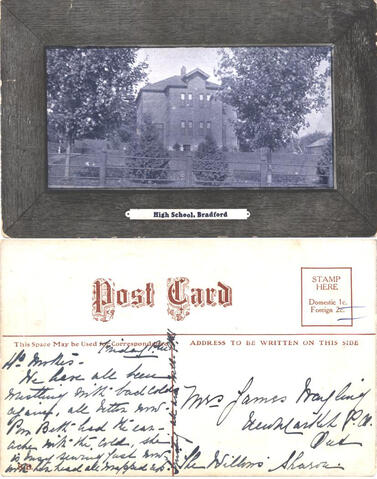 High School, Bradford
Post Card
STAMP
HERE
Domestic 1c.
Foreign 2c.
This Space May be Used for Correspondence
ADDRESS TO BE WRITTEN ON THIS SIDE
We have all been
with bad colds
again, all better now
had the ear
ache with the cold, she
is busy sewing just now
with her head all wrapped up.
Mrs James
Newmarket P.O.
Ont
The Willows Sharon